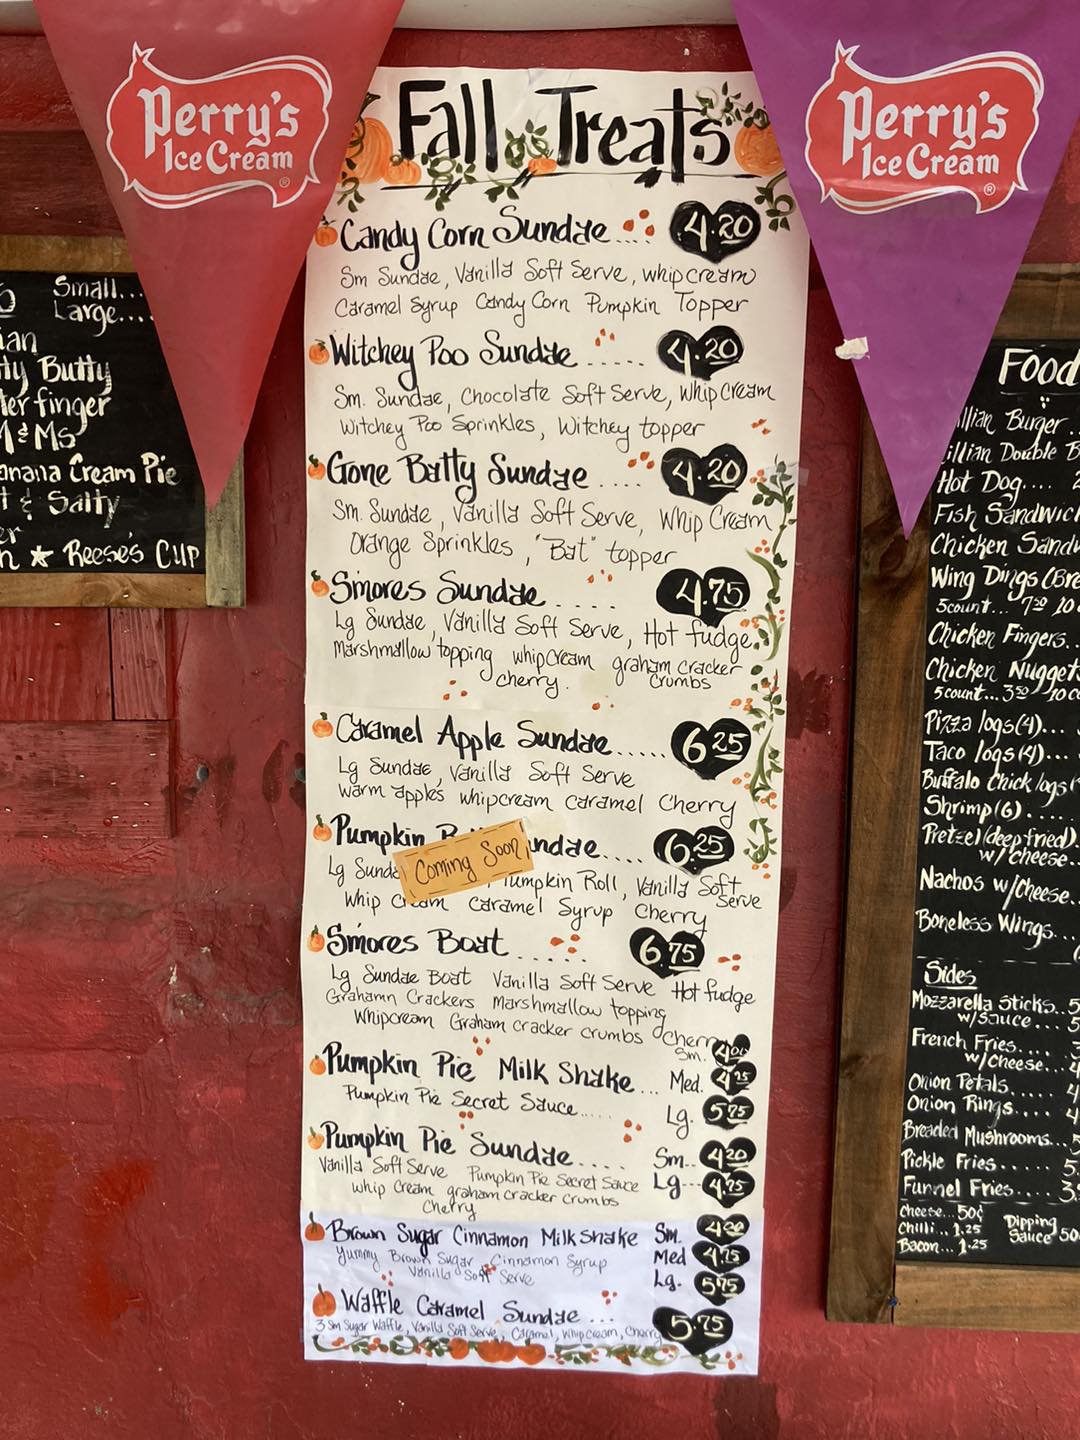 Perry's
Ice Cream
®
Perry's
Ice Cream
®
Fall Treats
Candy Corn Sundae.... 4.20
Sm Sundae, Vanilla Soft Serve, whip cream
Caramel Syrup Candy Corn Pumpkin Topper
Witchey Poo Sundae ..... 4.20
Sm. Sundae, Chocolate Soft Serve, Whip Cream
Witchey Poo Sprinkles, Witchey topper
Gone Batty Sundae .... 4.20
Sm. Sundae, Vanilla Soft Serve, Whip Cream
Orange Sprinkles, "Bat" topper
S'mores Sundae .... 4.75
Lg Sundae, Vanilla Soft Serve, Hot fudge,
Marshmallow topping whip cream graham cracker
cherry. crumbs
Caramel Apple Sundae..... 6.25
Lg Sundae, Vanilla Soft Serve
warm apples whipcream caramel Cherry
Pumpkin ndae.... 6.25
Coming Soon,
Lg Pumpkin Roll, Vanilla Soft
Serve
Whip Cream Caramel Syrup Cherry
S'mores Boat ...... 6.75
Lg Sundae Boat Vanilla Soft Serve Hot fudge
Grahamn Crackers Marshmallow topping
Whipcream Graham cracker crumbs Cherry
Sm. 4.00
Pumpkin Pie Milk Shake... Med. 4.25
Pumpkin Pie Secret Sauce..... Lg. 5.75
Pumpkin Pie Sundae.... Sm.. 4.20
Vanilla Soft Serve Pumpkin Pie Secret Sauce Lg--- 4.75
whip cream graham cracker crumbs
Cherry
Brown Sugar Cinnamon Milkshake Sm.
Yummy Brown Sugar, Cinnamon Syrup Med 4.75
Vanilla Soft Serve Lg. 5.75
Waffle Caramel Sundae ... 5.75
3 Sm Sugar Waffle, Vanilla Soft Serve, Caramel, Whipcream, Cherry
Small...
Large....
ian
ty Butty
erfinger
M&Ms
anana Cream Pie
t & Salty
er
h ★ Reese's Cup
Food
illian Burger..
illian Double B
Hot Dog.... 2
Fish Sandwich
Chicken Sandw
Wing Dings (Bre
5count... 7.20 10 c
Chicken Fingers..
Chicken Nuggets
5count...3.50 10 co
Pizza logs(4)...
Taco logs(4)...
Buffalo Chick logs(
Shrimp(6)....
Pretzel (deep fried).
w/cheese..
Nachos w/cheese..
Boneless Wings...
Sides
Mozzarella Sticks.. 5
w/sauce... 5
French Fries....
w/cheese... 4
Onion Petals.... 4
Onion Rings.... 4
Breaded Mushrooms... 5
Pickle Fries..... 5
Funnel Fries.... 3
cheese.. 50¢
Chilli... 1.25
Bacon... 1.25
Dipping
Sauce 50